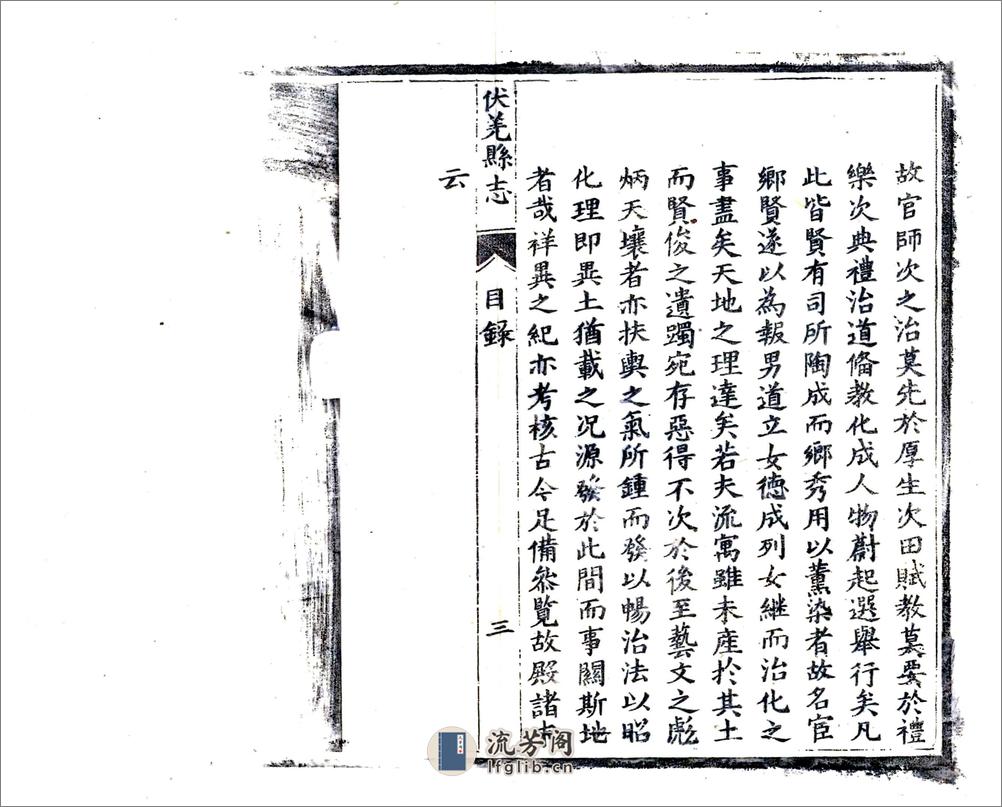 故官師次之治莫先於厚生次田賦教莫要於禮
樂次典禮治道俻教化成人物蔚起選舉行矣凡
此皆賢有司所陶成而鄉秀用以薰染者故名宦
鄉賢遂以為報男道立女德成列女継而治化之
事盡矣天地之理達矣若夫流寓雖未產於其土
而賢俊之遺躅宛存惡得不次於後至藝文之彪
炳天壤者亦扶輿之氣所鍾而發以暢治法以昭
化理即異土猶載之况源發於此間而事關斯地
者哉祥異之紀亦考核古今足備叅覧故殿諸末
云
伏羌縣志
目錄
三
流芳阁
lfglib.cn